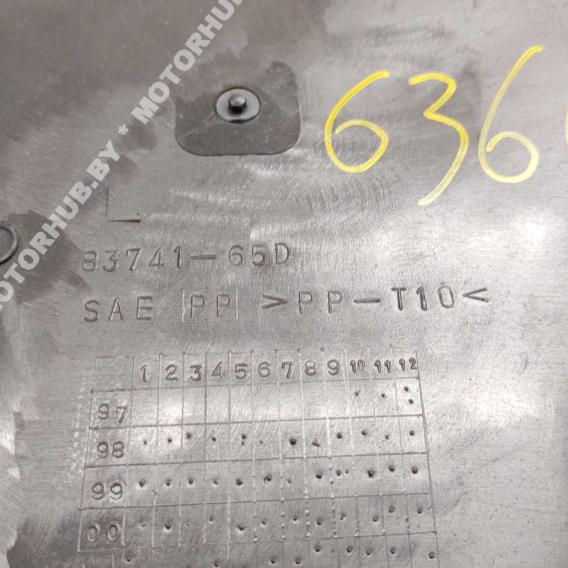 MOTORHUB.BY * MOTORHUB
636
83741-65D
SAE PP >PP-T10<
1 2 3 4 5 6 7 8 9 10 11 12
97
98
99
00